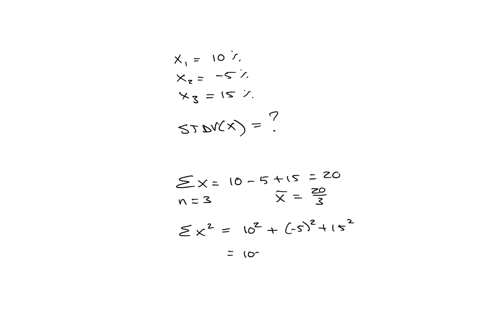 x₁ = 10 %.
x₂ = -5 %.
x₃ = 15 %.
STDV(X) = ?
Σx = 10 - 5 + 15 = 20
n = 3 x̄ = 20/3
Σx² = 10² + (-5)² + 15²
= 10